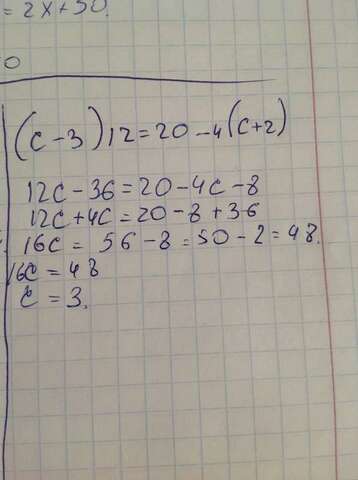 = 2x+50.
0
(c-3)12=20-4(c+2)
12c-36=20-4c-8
12c+4c=20-8+36
16c= 56-8=50-2=48.
16c=48
c=3.